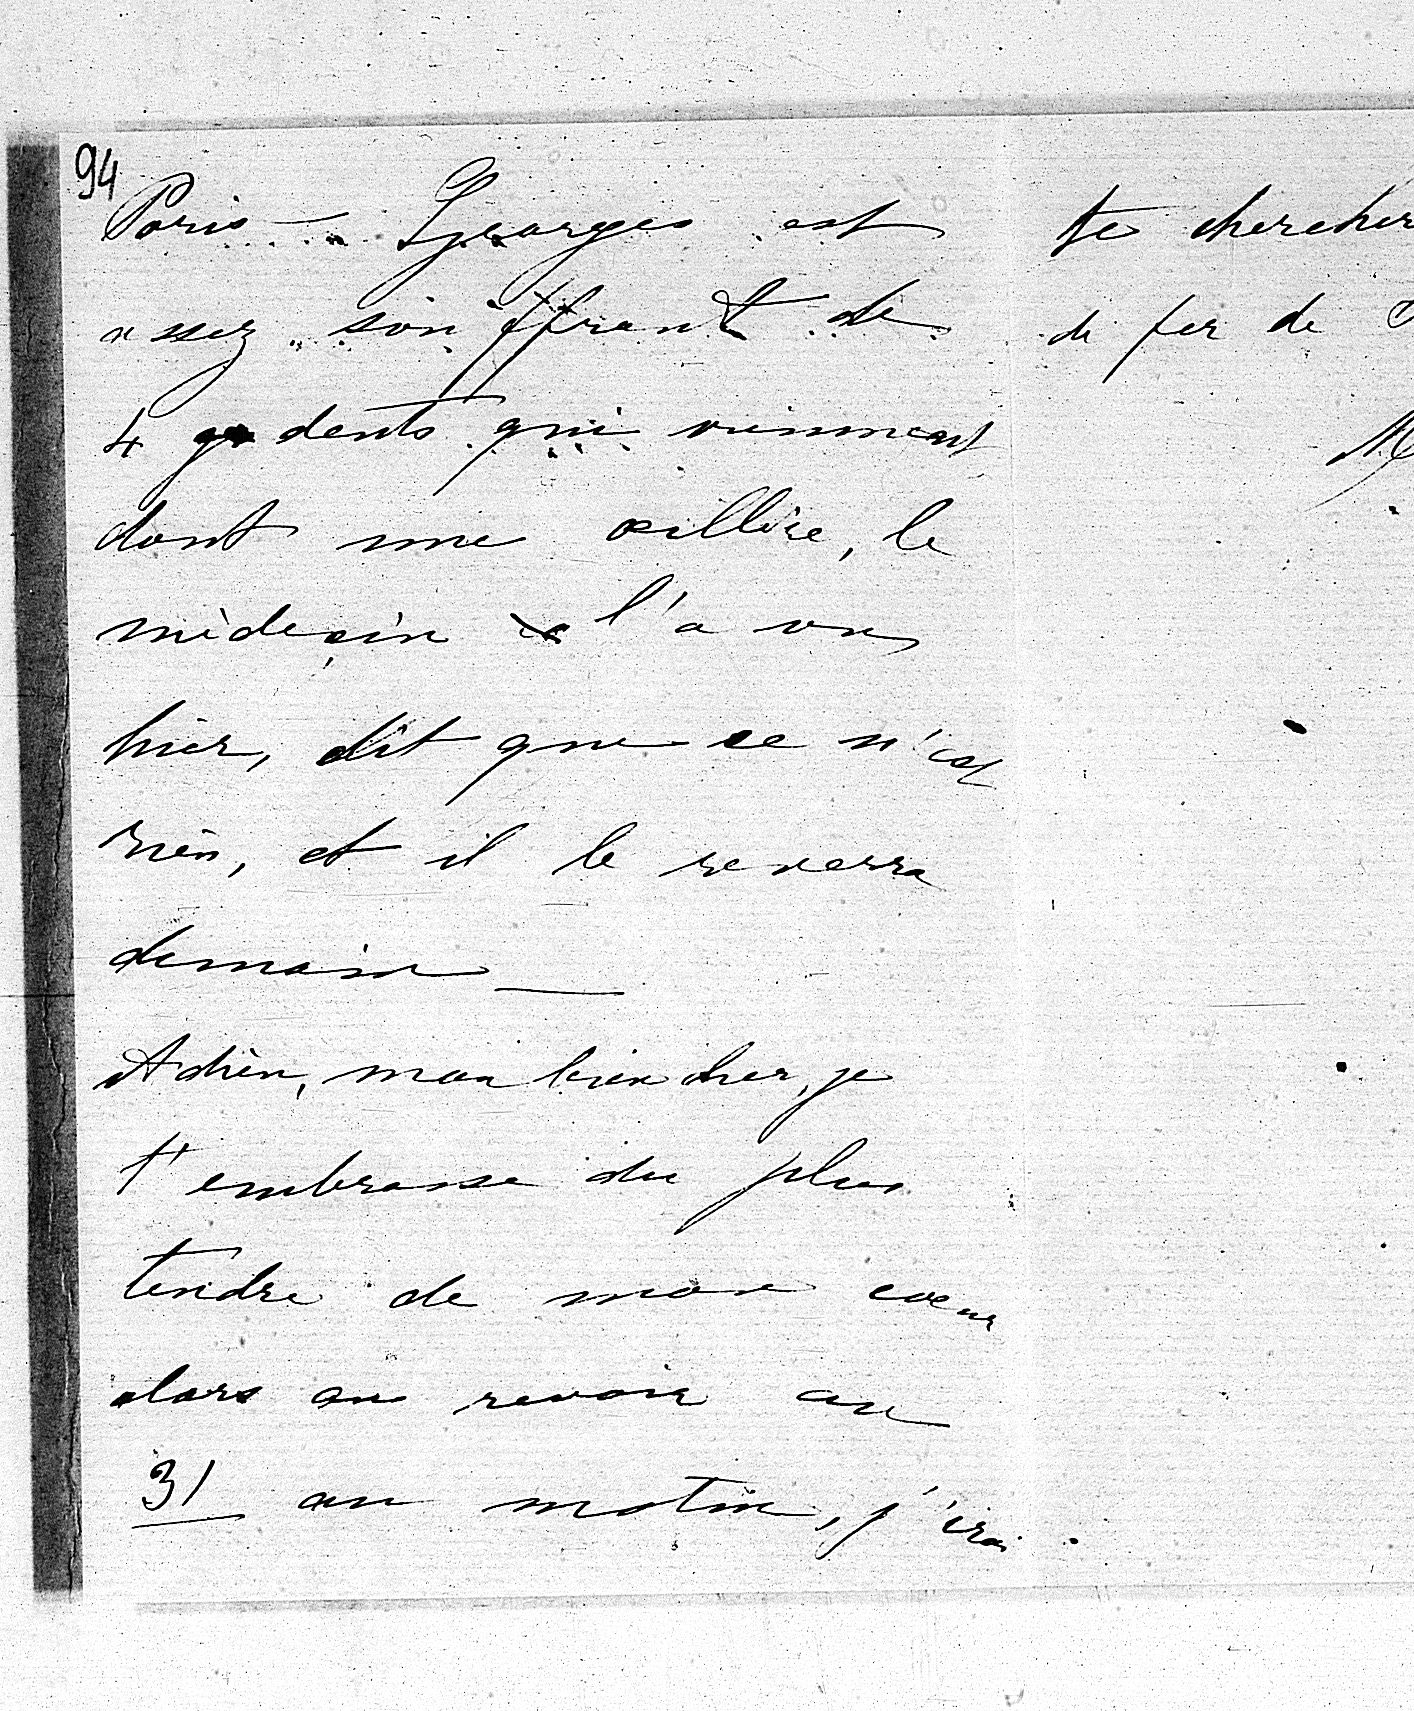 94
Paris — Georges est
assez souffrant de
4 dents qui viennent
dont une œillère, le
médecin l'a vu
hier, dit que ce n'est
rien, et il le reverra
demain —
Adieu, mon bien cher, je
t'embrasse du plus
tendre de mon cœur
alors au revoir au
31 au matin, j'irai
te chercher
de fer de